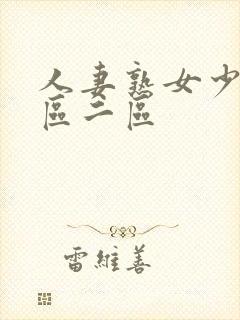 人妻熟女少
區二區
雷維善